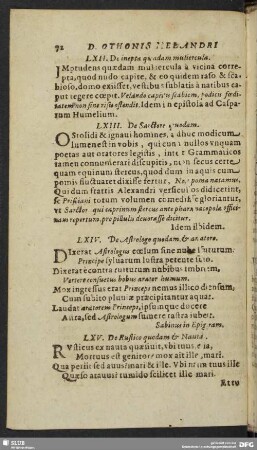 92 D. OTHONIS MELANDRI
LXII. De inepta quadam muliercula.
IMprudens quædam muliercula à vicina correpta,
quod nudo capite, & eo quidem raso & scabioso,
domo exisset, vestibus sublatis à natibus caput
tegere cœpit. Velando capitis scabiem, podicis
non sine risu ostendit. Idem in epistola ad Casparum
Humelium.
LXIII. De Sartore quodam.
OStosidi & ignavi homines, adhuc modicum
lumen est in vobis, qui cum nullos vnquam
poetas aut oratores legistis, inter Grammaticos
tamen connumerari discupitis, non secus certe
quam equinum stercus, quod dum in aquis cum
pomis fluctuaret dixisse fertur, Nos poma natamus.
Qui dum fratris Alexandri versiculos didicerint,
se Prisciani totum volumen comedisse gloriantur,
vt Sartor qui caprinum stercus ante
repertum, pro pilulis devorasse dicitur.
Idem ibidem.
LXIV. De Astrologo quodam, & aratore.
DIxerat Astrologus cœlum sine nube futurum:
Princeps syluarum lustra petente suo.
Dixerat è contra rutturum nubibus imbrem,
Vertere consuetus bobus arator humum.
Mox ingressus erat Princeps nemus illico densum,
Cum subito pluviæ præcipitantur aquæ.
Laudat aratorem Princeps, ipsumque ducere
Astra, sed Astrologum sumere rastra iubet.
Sabinus in Epigram.
LXV. De Rustico quodam & Nauta.
RVsticus ex nauta quæsiuit, vbi tuus,
Mortuus est genitor? mox ait ille, mari.
Qua periit sed auus? mari & ille. Vbi tuus ille
Quæso atauus? tumido scilicet ille mari.
SLUB
DFG